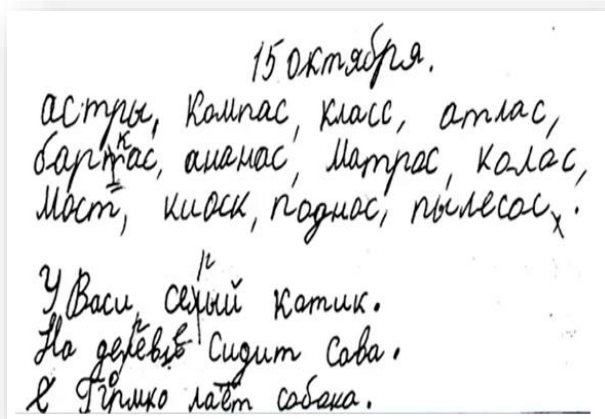 15 октября.
астры, компас, класс, атлас,
баркас, ананас, матрас, колас,
мост, киоск, поднос, пылесос.
У Васи серый катик.
На сидит сава.
лаёт собака.